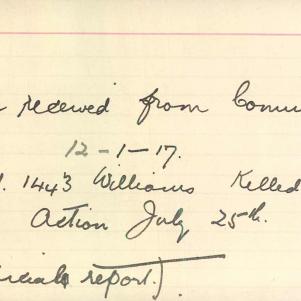 received from
12-1-17.
1443 Williams Killed
Action July 25th.
report.)